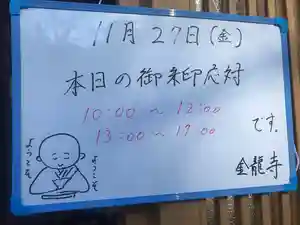 11月27日(金)
本日の御朱印応対
10:00 〜 12:00
13:00 〜 17:00
です。
金龍寺
ようこそ